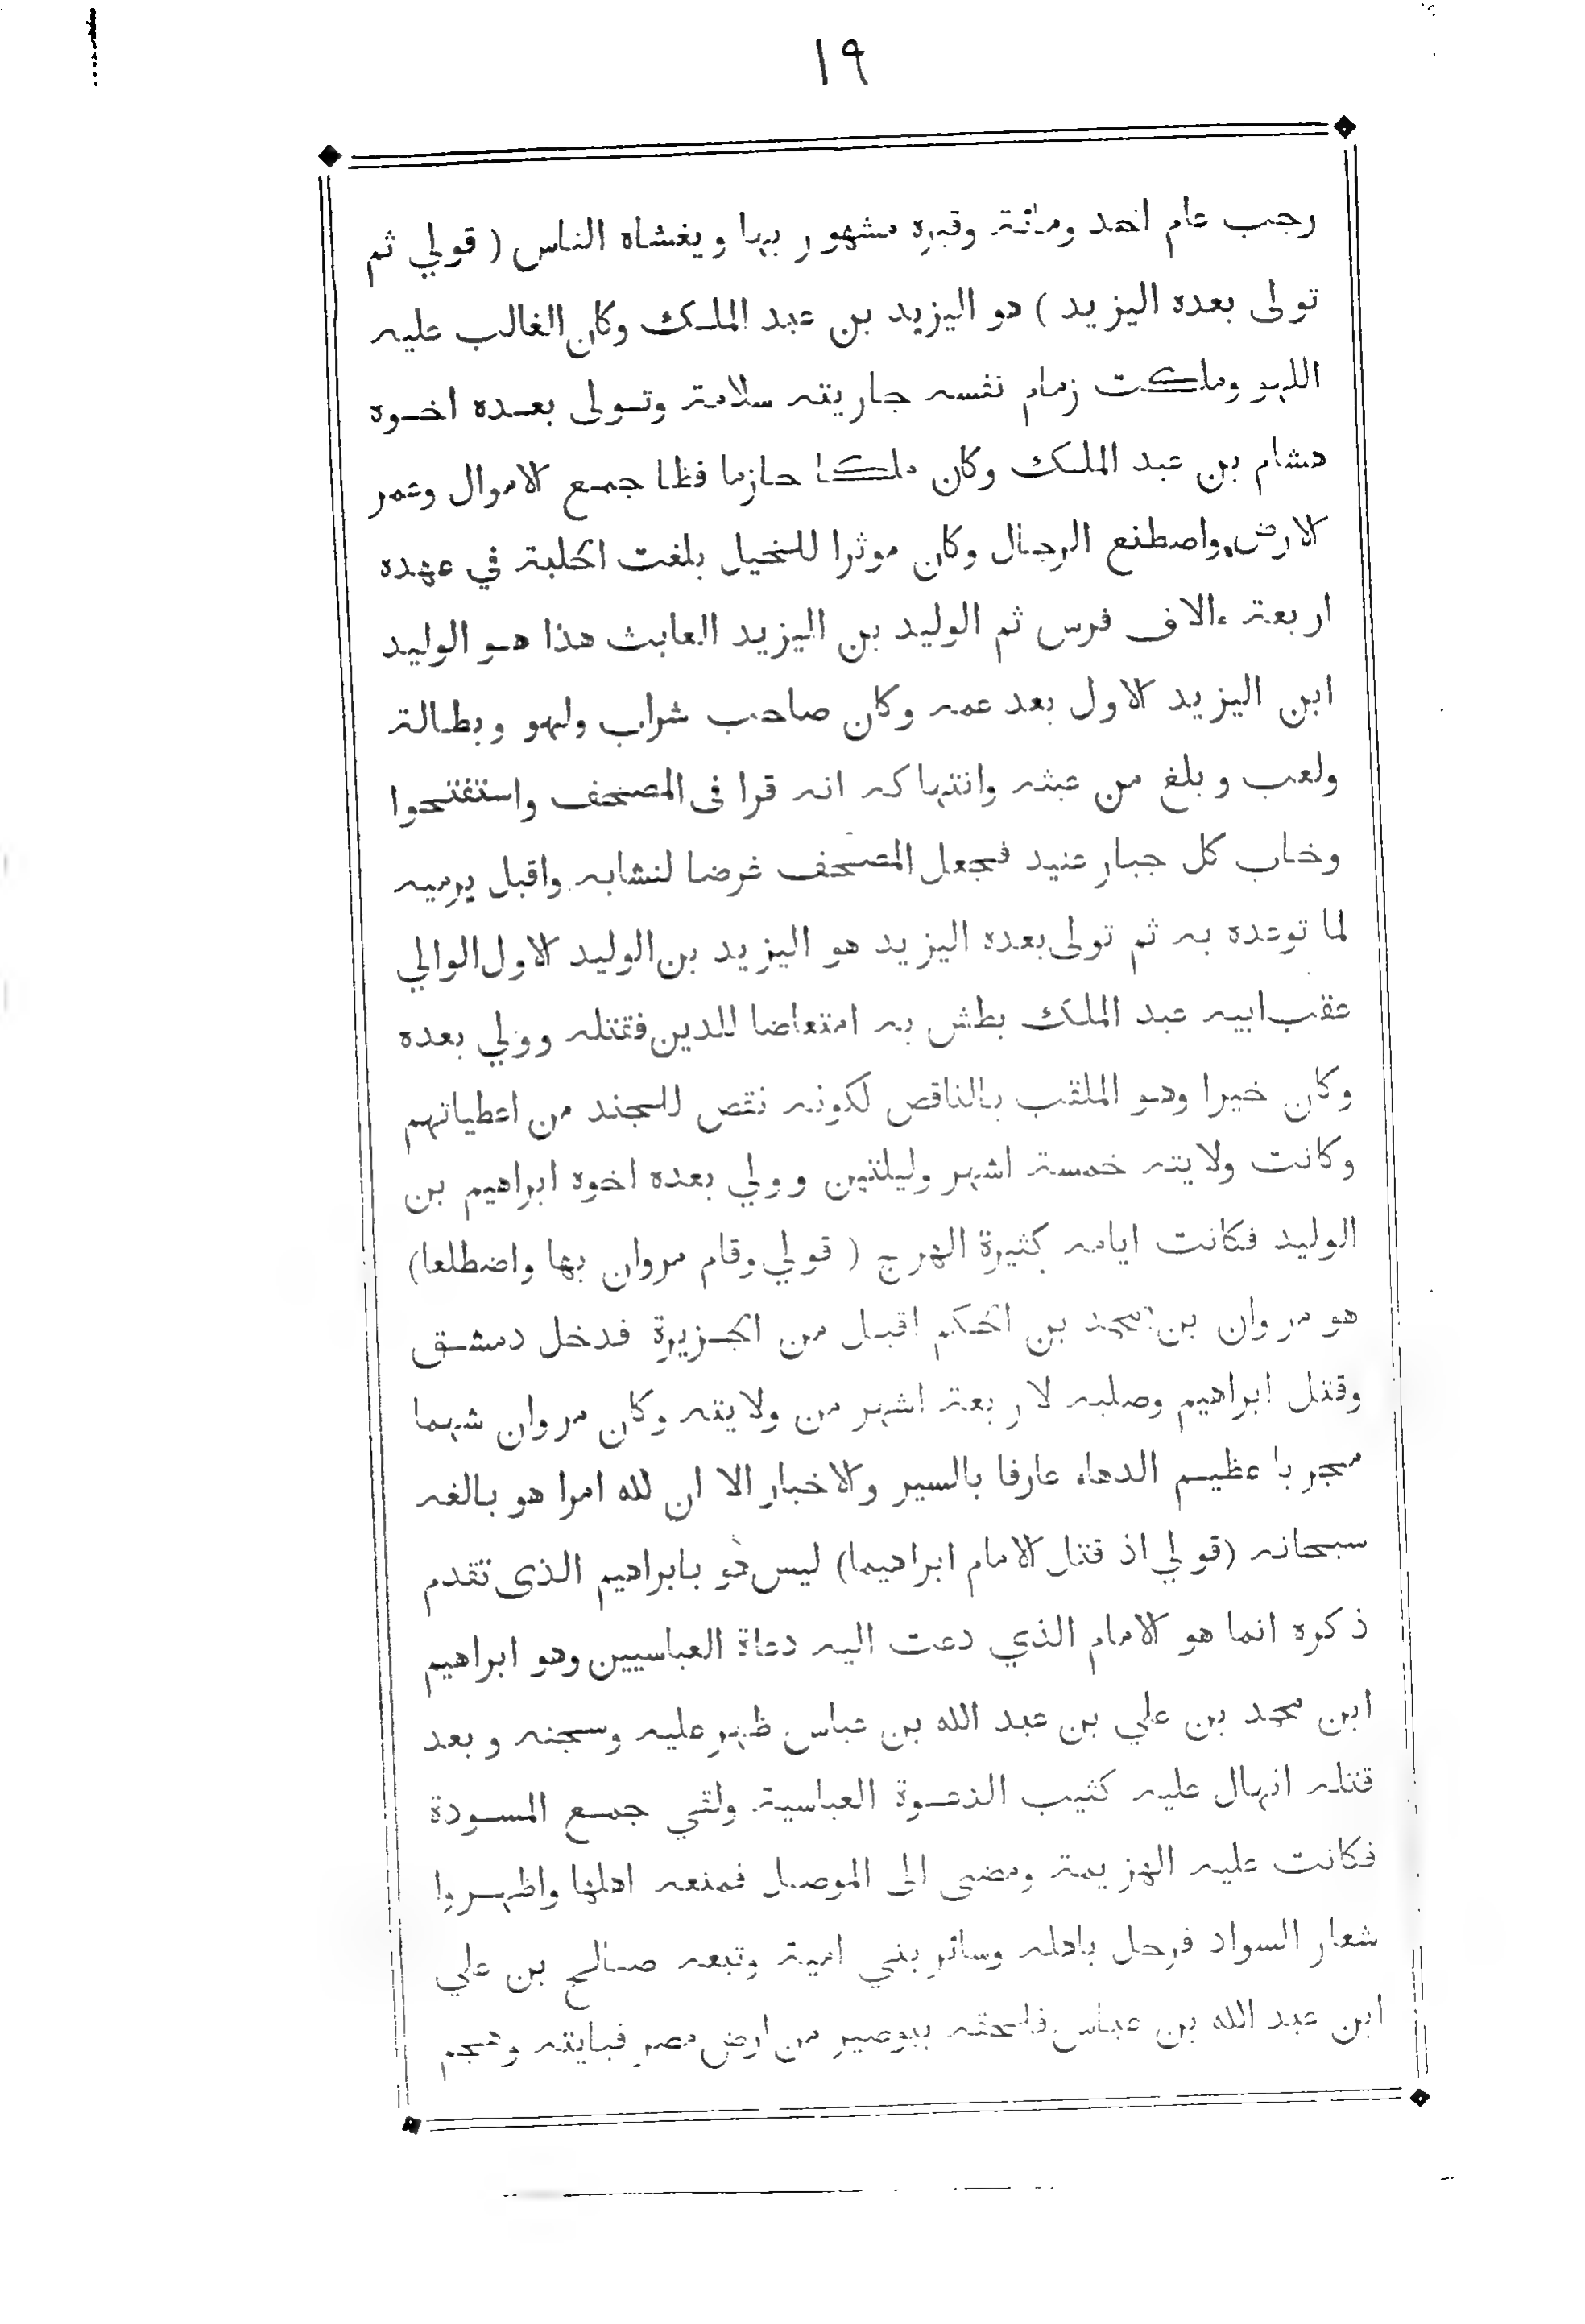 ١٩
رجب عام احد ومائة وقبره مشهور بها ويغشاه الناس ( قولي ثم
تولى بعده اليزيد ) هو اليزيد بن عبد الملك وكان الغالب عليه
اللهو وملكت زمام نفسه جاريته سلامة وتولى بعده اخوه
هشام بن عبد الملك وكان ملكا حازما فظا جمع الاموال وعمر
الارض واصطنع الرجال وكان موثرا للخيل بلغت الحلبة في عهده
اربعة ءالاف فرس ثم الوليد بن اليزيد العابث هذا هو الوليد
ابن اليزيد الاول بعد عمه وكان صاحب شراب ولهو وبطالة
ولعب وبلغ من عبثه وانتهاكه انه قرا فى المصحف واستفتحوا
وخاب كل جبار عنيد فجعل المصحف غرضا لنشابه واقبل يرميه
لما توعده به ثم تولى بعده اليزيد هو اليزيد بن الوليد الاول الوالي
عقب ابيه عبد الملك بطش به امتعاضا للدين فقتله وولي بعده
وكان خيرا وهو الملقب بالناقص لكونه نقص للجند من اعطياتهم
وكانت ولايته خمسة اشهر وليلتين وولي بعده اخوه ابراهيم بن
الوليد فكانت ايامه كثيرة الهرج ( قولي وقام مروان بها واضطلعا)
هو مروان بن محمد بن الحكم اقبل من الجزيرة فدخل دمشق
وقتل ابراهيم وصلبه لاربعة اشهر من ولايته وكان مروان شهما
مجربا عظيم الدهاء عارفا بالسير والاخبار الا ان لله امرا هو بالغه
سبحانه (قولي اذ قتل الامام ابراهيما) ليس هو بابراهيم الذى تقدم
ذكره انما هو الامام الذي دعت اليه دعاة العباسيين وهو ابراهيم
ابن محمد بن علي بن عبد الله بن عباس ظهر عليه وسجنه وبعد
قتله انهال عليه كثيب الدعوة العباسية ولقي جمع المسودة
فكانت عليه الهزيمة ومضى الى الموصل فمنعه اهلها واظهروا
شعار السواد فرحل باهله وسائر بني امية وتبعه صالح بن علي
ابن عبد الله بن عباس فالحقه ببوصير من ارض مصر فبايته وهجم